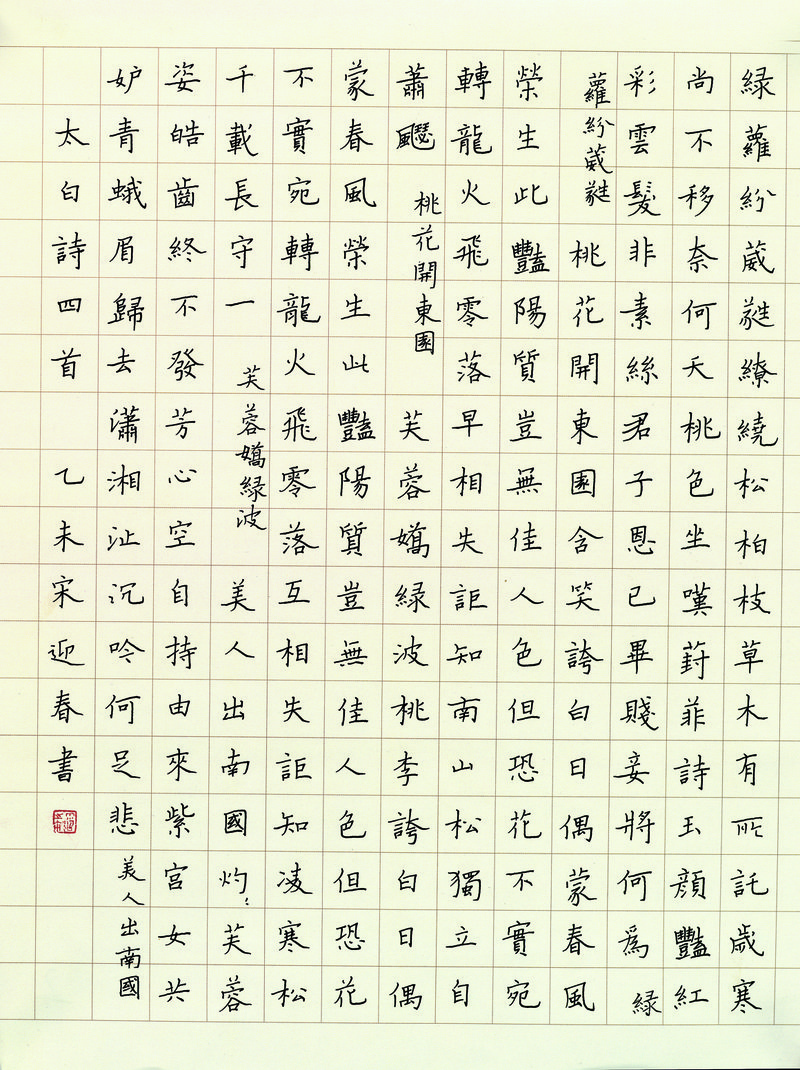 緑蘿紛葳蕤繚繞松柏枝草木有所託歲寒
尚不移奈何夭桃色坐嘆葑菲詩玉顔豔紅
彩雲髮非素絲君子恩已畢賤妾將何為 緑
蘿紛葳蕤 桃花開東園含笑誇白日偶蒙春風
榮生此豔陽質豈無佳人色但恐花不實宛
轉龍火飛零落早相失詎知南山松獨立自
蕭飋 桃花開東園 芙蓉嬌緑波桃李誇白日偶
蒙春風榮生此豔陽質豈無佳人色但恐花
不實宛轉龍火飛零落互相失詎知凌寒松
千載長守一 芙蓉嬌緑波 美人出南國灼〻芙蓉
姿皓齒終不發芳心空自持由來紫宮女共
妒青蛾眉歸去瀟湘沚沉吟何足悲 美人出南國
太白詩四首 乙未宋迎春書